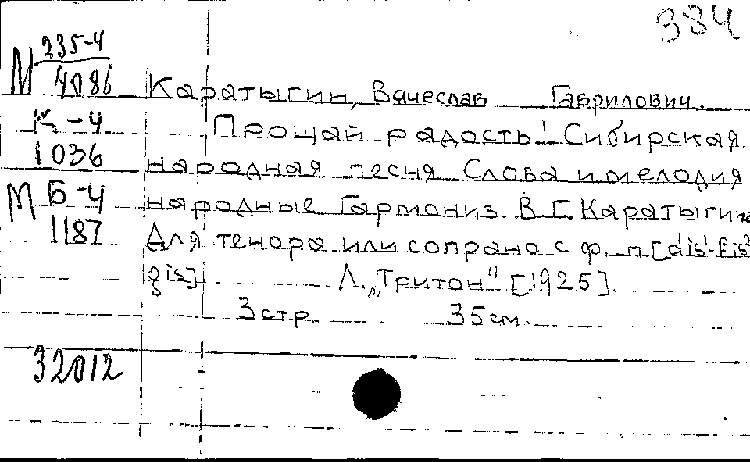 384
М 235-4
4086
Каратыгин, Вячеслав Гаврилович.
К-4
Прощай радость! Сибирская
1036
народная песня Слова и мелодия
М Б-4
народные Гармониз. В.Г. Каратыгин
1187
Для тенора или сопрано с ф. п [dis¹-fis²
gis]
Л. „Тритон" [1925].
3 стр 35 см.
32012